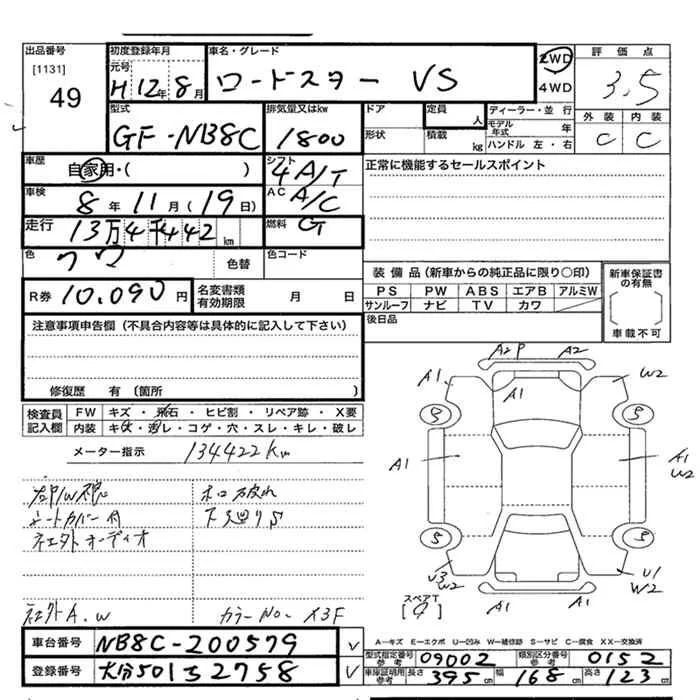 出品番号
[1131]
49
初度登録年月
元号
H 12年 8月
車名・グレード
ロードスター VS
2WD
4WD
評価点
3.5
型式
GF-NB8C
排気量又はkw
1800
ドア
形状
定員
人
積載
kg
ディーラー・並行
モデル年式 年
ハンドル 左・右
外装 内装
C C
車歴
自家用・( )
シフト
4 A/T
正常に機能するセールスポイント
車検
8年 11月 (19日)
AC
A/C
走行
13万4千442 km
燃料
G
色
クワ
色替
色コード
R券 10.090円
名変書類
有効期限
月 日
装備品(新車からの純正品に限り○印)
PS PW ABS エアB アルミW
サンルーフ ナビ TV カワ
新車保証書
の有無
車載不可
後日品
注意事項申告欄(不具合内容等は具体的に記入して下さい)
修復歴 有(箇所 )
検査員
記入欄
FW キズ・飛石・ヒビ割・リペア跡・X要
内装 キズ・汚レ・コゲ・穴・スレ・キレ・破レ
メーター指示 134422km
シートカバー付
下廻りS
社外オーディオ
社外A.W
カラーNo- X3F
A2P A2
A1 A1 W2
A1 A1 W2
U3 W2 U1 W2
A1 A1
スペアT
A-キズ E-エクボ U-凹み W-補修跡 S-サビ C-腐食 XX-交換済
車台番号 NB8C-200579
登録番号 大分501ミ2758
型式指定番号
参考
09002
類別区分番号
参考
0152
車庫証明用
参考
長さ 395cm 幅 168cm 高さ 123cm